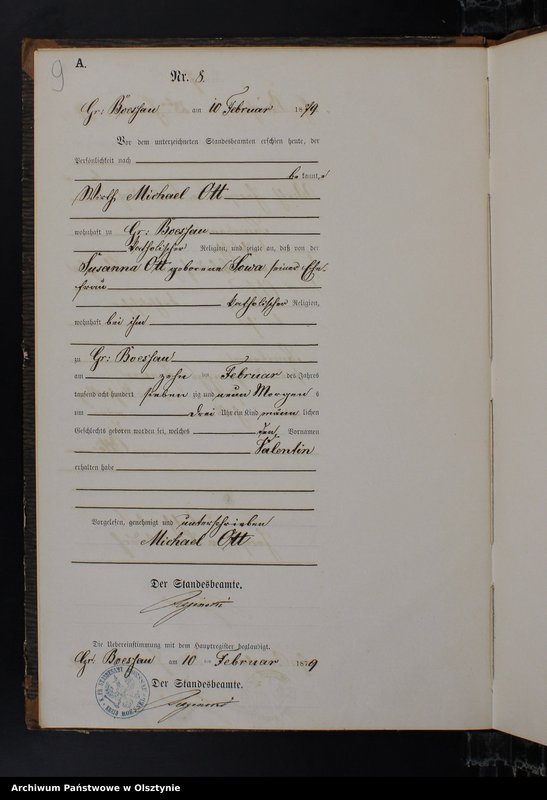 9
A.
Nr. 8.
Gr: Bössau am 10 Februar 1879
Vor dem unterzeichneten Standesbeamten erschien heute, der
Persönlichkeit nach
be kannt,
Wirth Michael Ott
wohnhaft zu Gr: Boessau
katholischer Religion, und zeigte an, daß von der
Susanna Ott geborene Sowa seiner Ehe-
frau
katholischer Religion,
wohnhaft bei ihm
zu Gr: Boessau
am zehn ten Februar des Jahres
tausend acht hundert sieben zig und neun Morgen s
um drei Uhr ein Kind männ lichen
Geschlechts geboren worden sei, welches den Vornamen
Valentin
erhalten habe
Vorgelesen, genehmigt und unterschrieben
Michael Ott
Der Standesbeamte.
Die Uebereinstimmung mit dem Hauptregister beglaubigt.
Gr: Boessau am 10 ten Februar 1879
Der Standesbeamte.
Archiwum Państwowe w Olsztynie